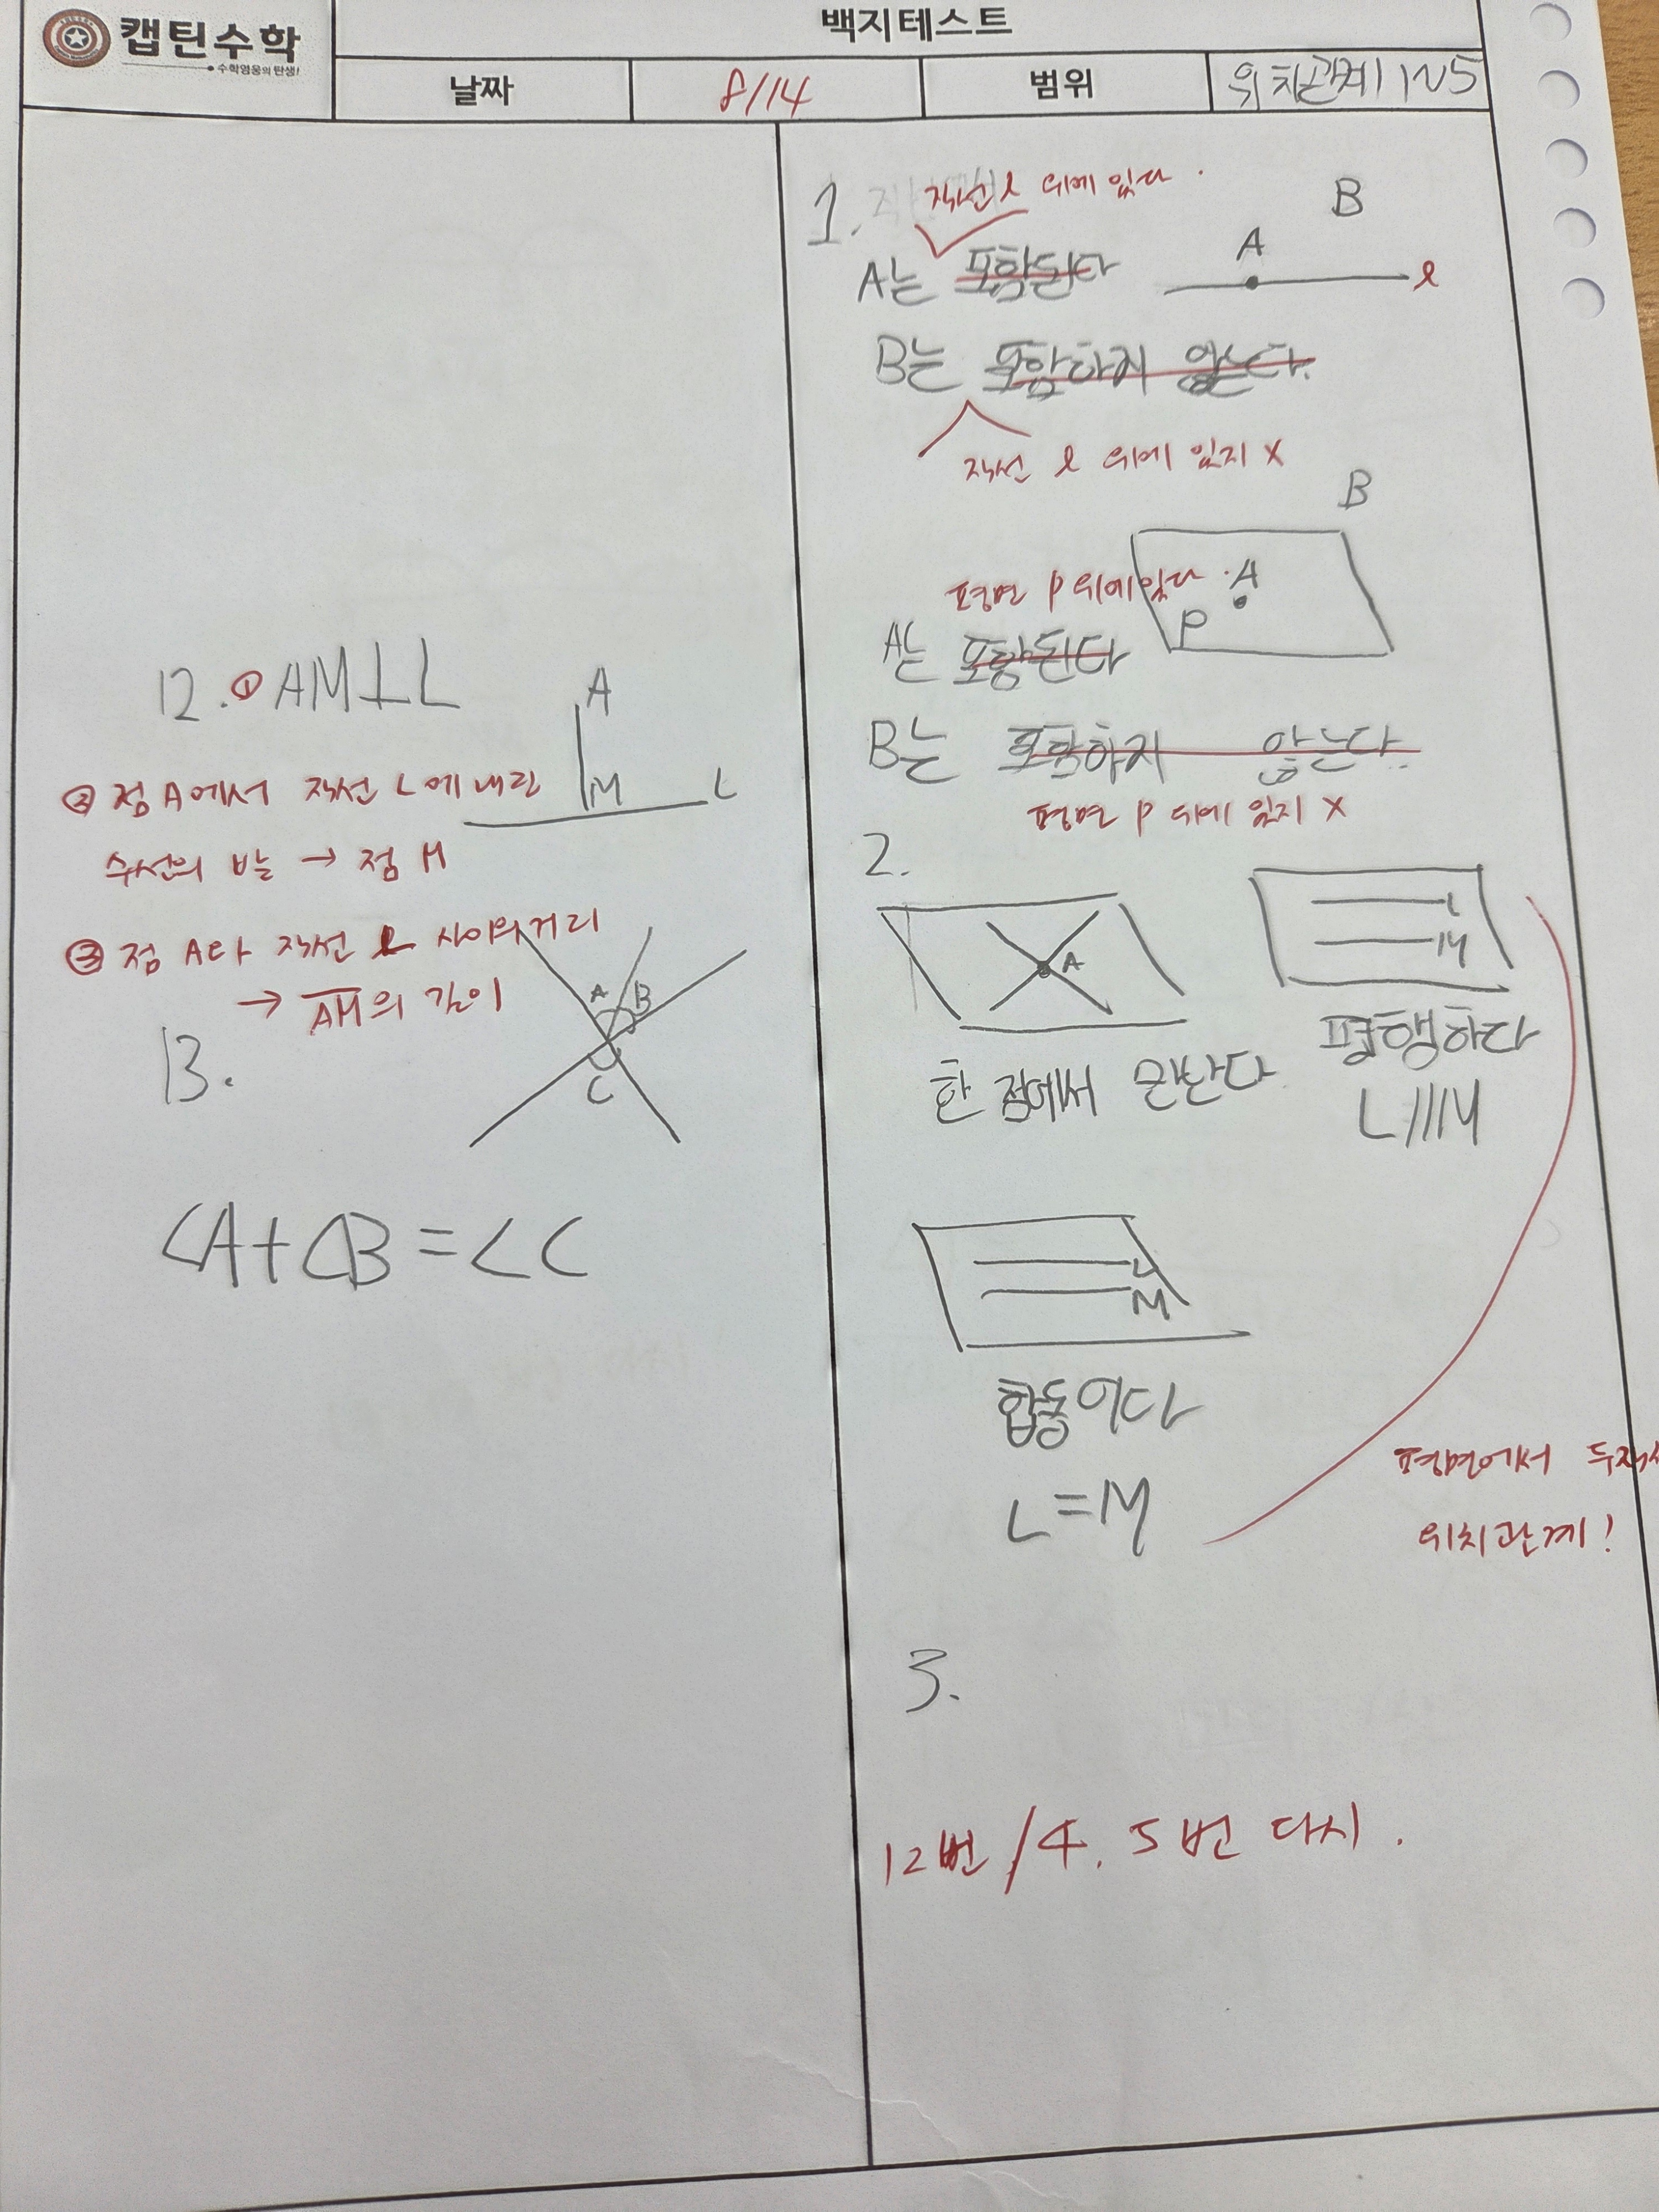 캡틴수학
수학영웅의 탄생!
백지테스트
날짜
8/14
범위
위치관계 1~5
12. ① AM⊥L
A
M
L
② 점 A에서 직선 L에 내린
수선의 발 → 점 M
③ 점 A와 직선 L 사이의 거리
→ A̅M̅의 길이
13.
A
B
C
∠A+∠B=∠C
1.
직선 l 위에 있다.
A는 포함된다
A
B
l
B는 포함하지 않는다.
직선 l 위에 있지 X
B
A
P
평면 P 위에 있다.
A는 포함된다
B는 포함하지 않는다.
평면 P 위에 있지 X
2.
A
한 점에서 만난다
L
M
평행하다
L//M
L
M
합동이다
L=M
평면에서 두직선
위치관계!
3.
12번 / 4, 5번 다시.